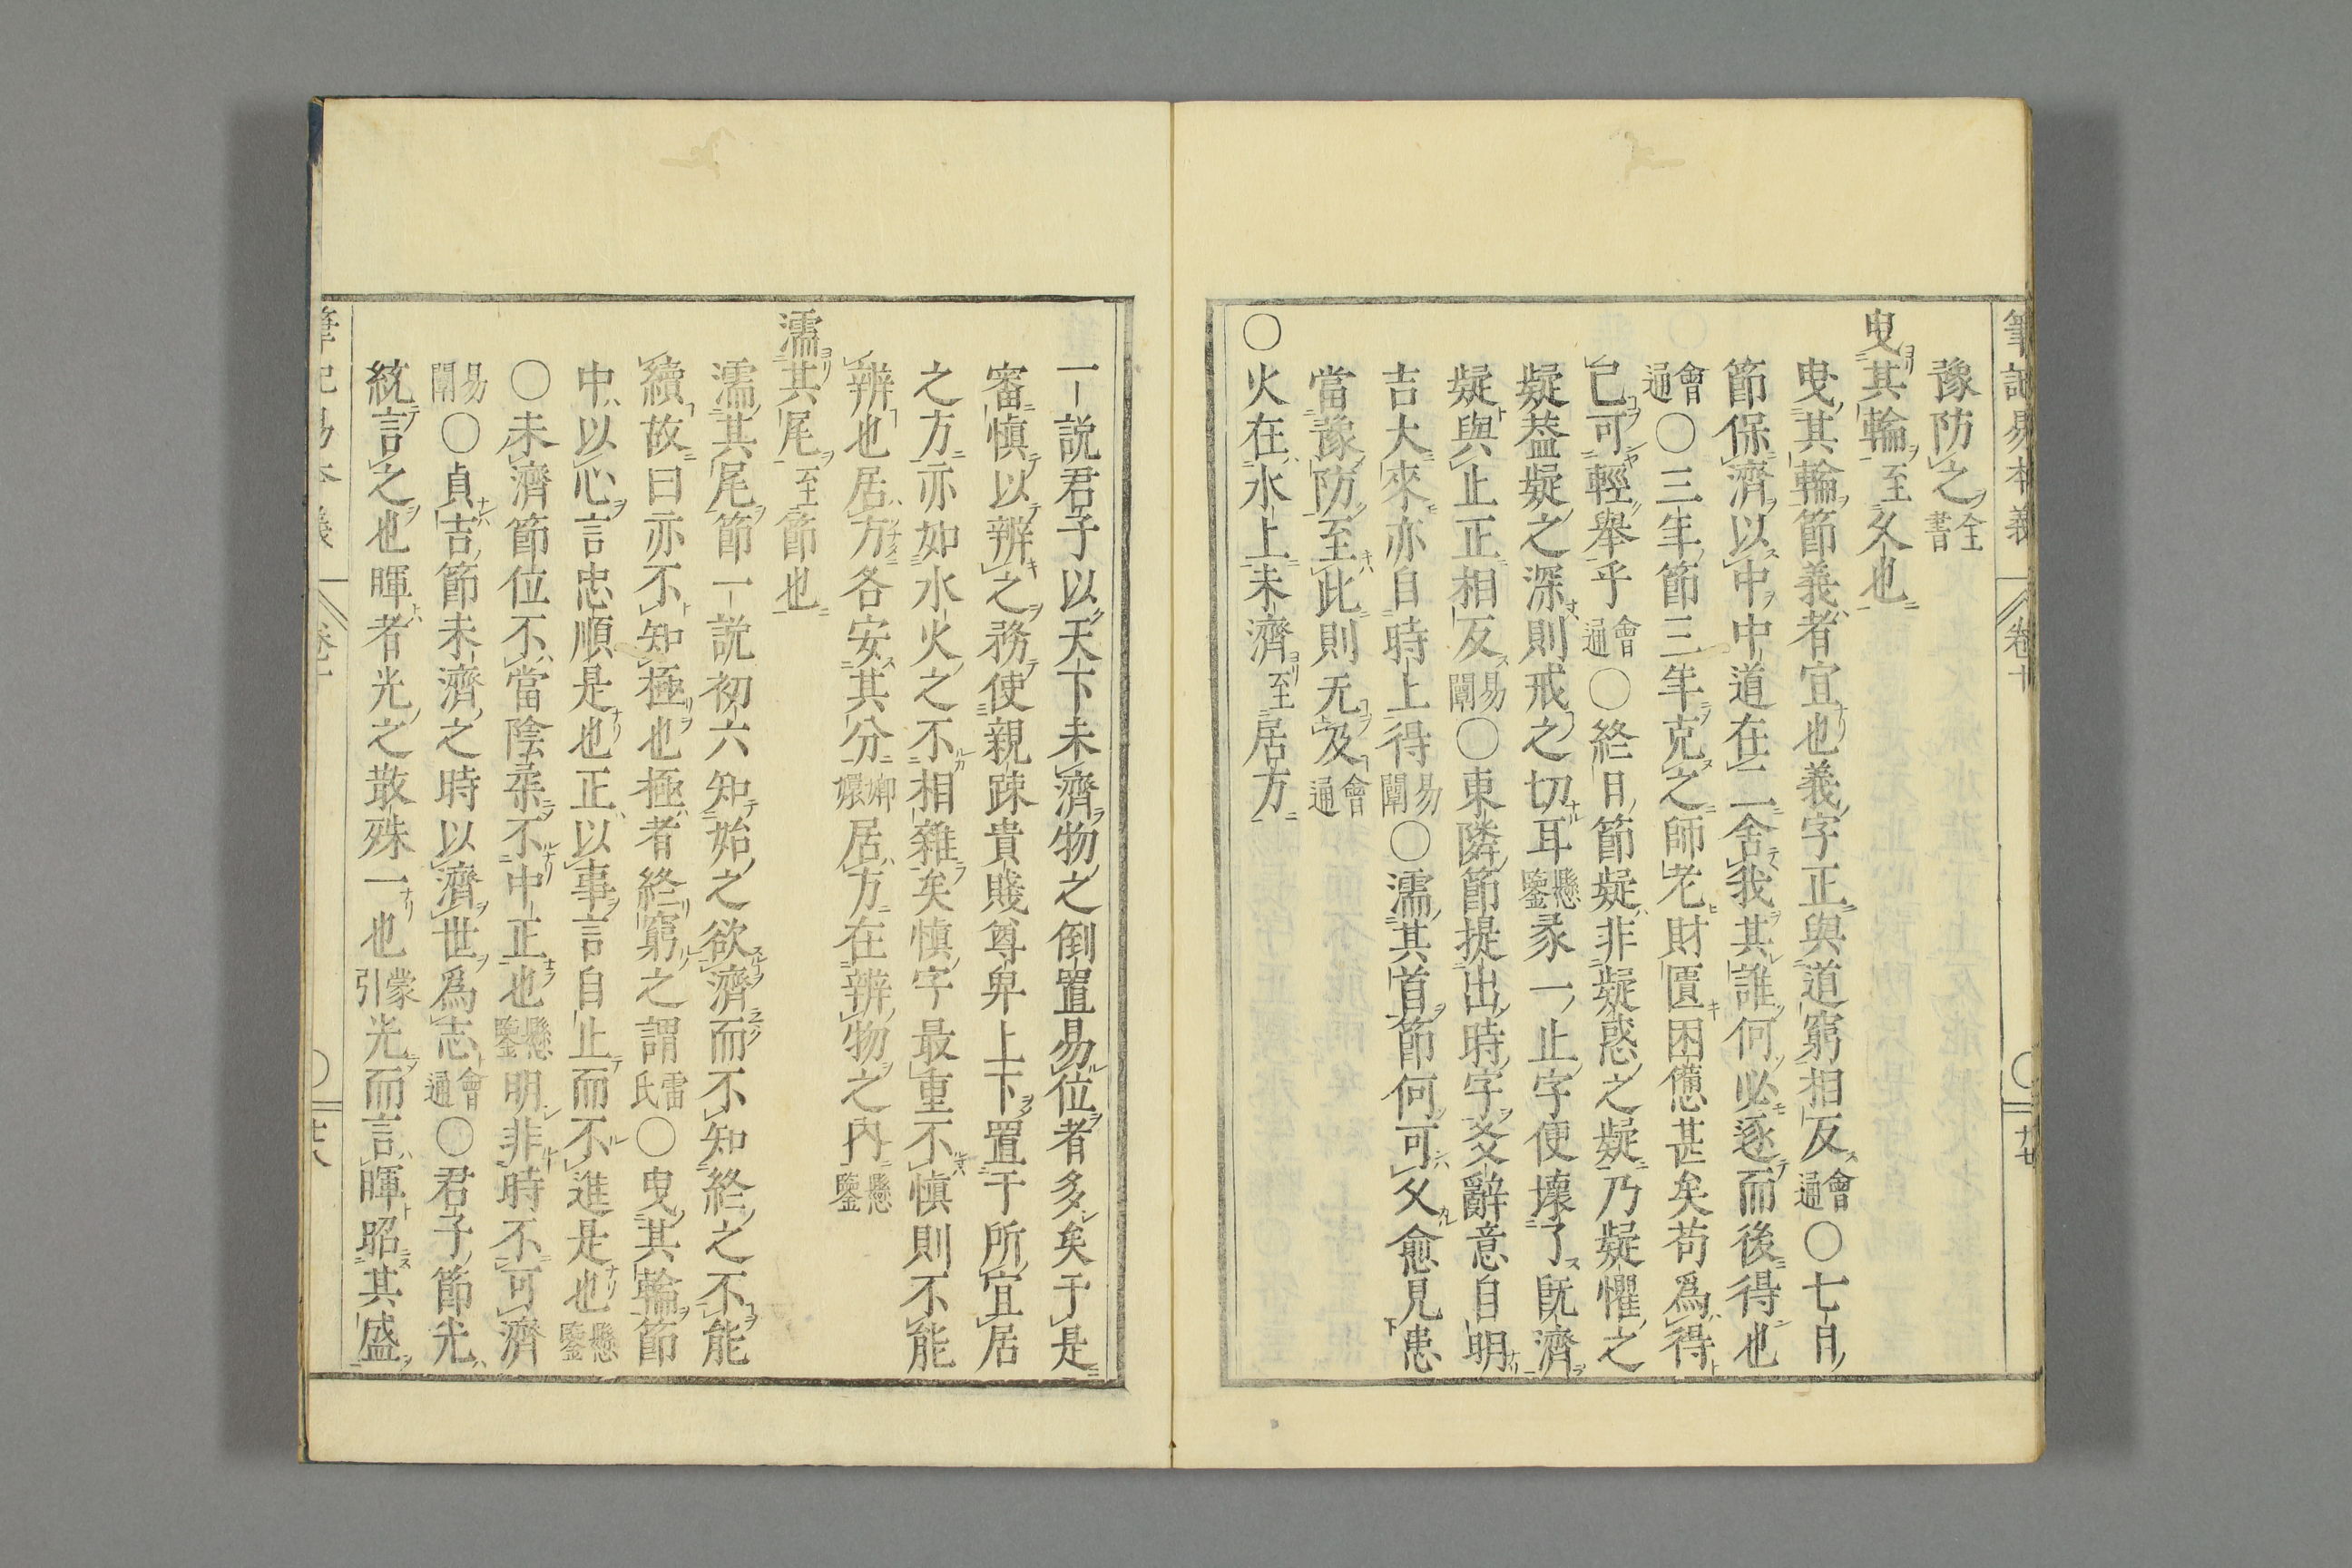 筆記易本義 卷十 ○ 廿七
豫防之全書
曳其輪至久也
曳其輪節義者宜也義字正與道窮相反會通○七日
節保濟以中中道在二二舍我其誰何必逐而後得也
會通○三年節三年克之師老財匱困憊甚矣苟爲得
已可輕舉乎會通○終日節疑非疑惑之疑乃疑懼之
疑葢疑之深則戒之切耳懸鑒彖一止字便壞了既濟
疑與止正相反易闡○東隣節提出時字爻辭意自明
吉大來亦自時上得易闡○濡其首節何可久愈見患
當豫防至此則无及會通
○火在水上未濟至居方
一說君子以天下未濟物之倒置易位者多矣于是
審愼以辨之務使親踈貴賤尊卑上下置于所宜居
之方亦如水火之不相雜矣愼字最重不愼則不能
辨也居方各安其分嫏嬛居方在辨物之內懸鑒
濡其尾至節也
濡其尾節一說初六知始之欲濟而不知終之不能
續故曰亦不知極也極者終窮之謂雷氏○曳其輪節
中以心言忠順是也正以事言自止而不進是也懸鑒
○未濟節位不當陰柔不中正也懸鑒明非時不可濟
易闡○貞吉節未濟之時以濟世爲志會通○君子節光
統言之也暉者光之散殊一也蒙引光而言暉昭其盛